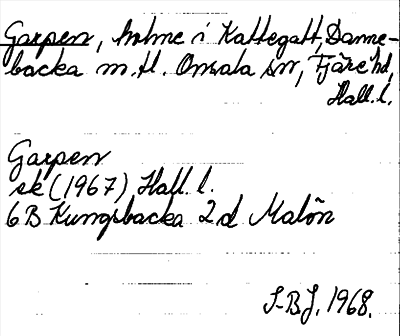 Garpen, holme i Kattegatt, Danne-
backa m.fl. Onsala sn, Fjäre hd,
Hall. l.
Garpen
sk (1967) Hall. l.
6B Kungsbacka 2d Malön
S-BJ. 1968.